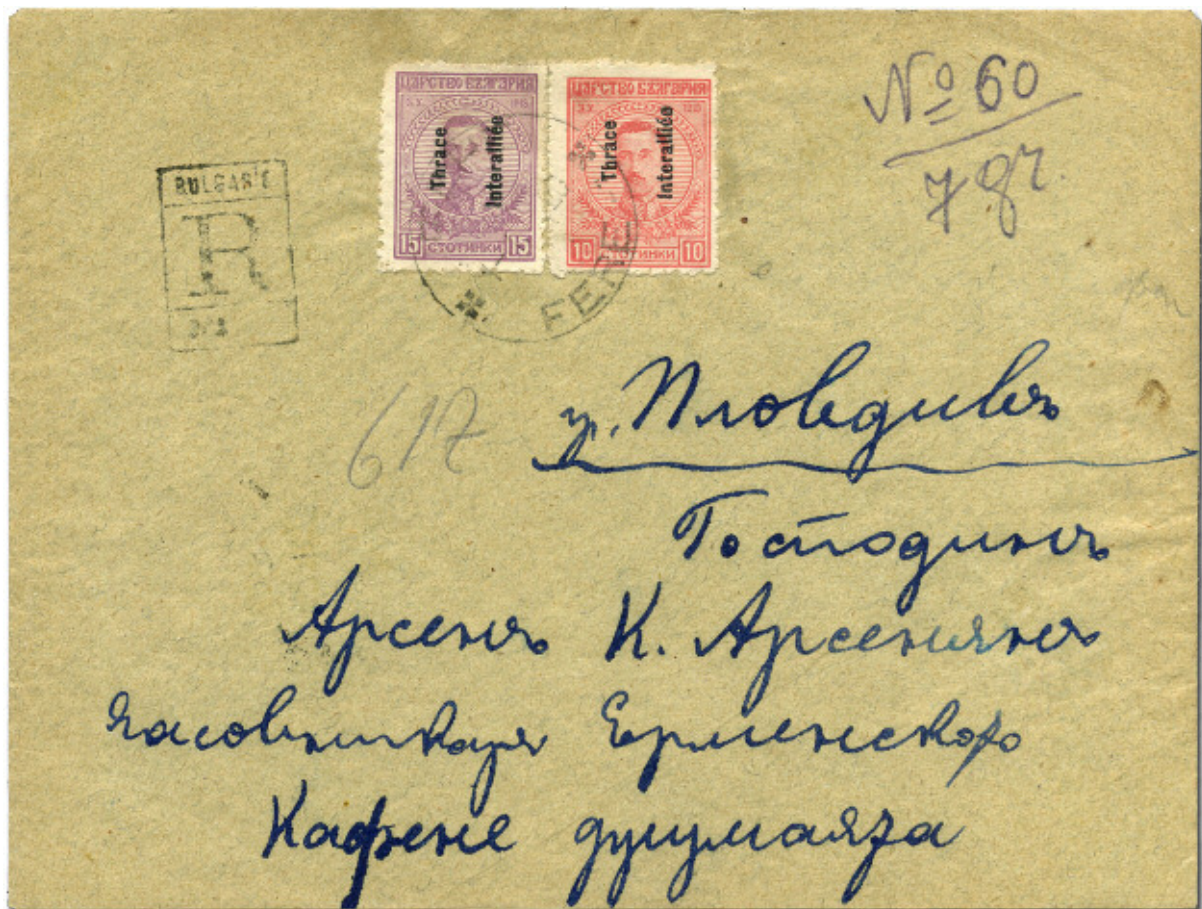 ЦАРСТВО БЪЛГАРИЯ
Thrace
Interalliée
15 СТОТИНКИ 15
ЦАРСТВО БЪЛГАРИЯ
Thrace
Interalliée
10 СТОТИНКИ 10
№ 60
7 gr.
BULGARIE
R
617
гр. Пловдивъ
Господинъ
Арсенъ К. Арсениянъ
Часовникаря Ерменското
Кафене